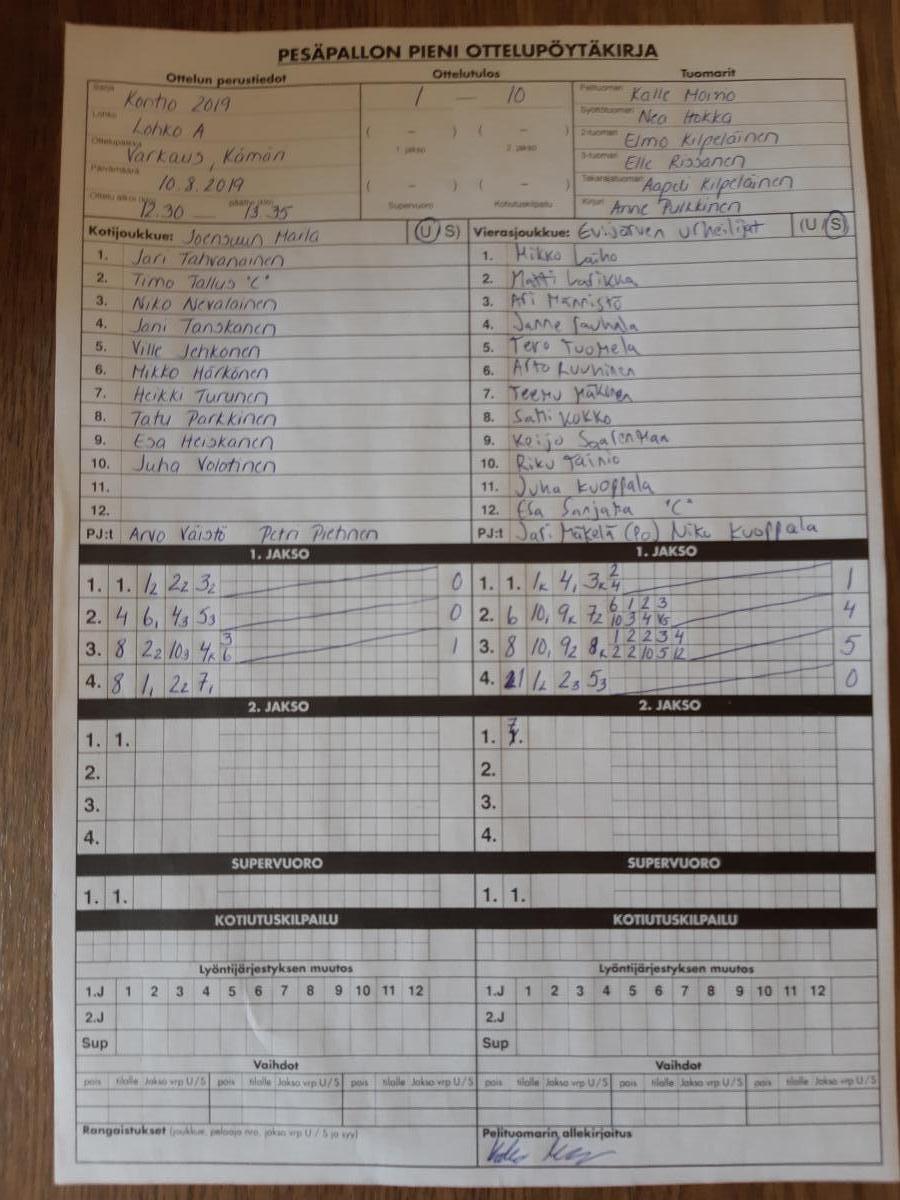 PESÄPALLON PIENI OTTELUPÖYTÄKIRJA
Ottelun perustiedot Ottelutulos Tuomarit
Sarja Kontio 2019 1 — 10 Pelituomari Kalle Moino
Lohko Lohko A Syöttötuomari Nea Hokka
Ottelupaikka Varkaus, Kämäri ( - ) ( - ) 2-tuomari Elmo Kilpeläinen
1. jakso 2. jakso 3-tuomari Elle Rissanen
Päivämäärä 10.8.2019 ( - ) ( - ) Takarajatuomari Aapeli Kilpeläinen
Ottelu alkoi (klo) 12.30 — päättyi (klo) 13.35 Supervuoro Kotiutuskilpailu Kirjuri Anne Pulkkinen
Kotijoukkue: Joensuun Maila (U S) Vierasjoukkue: Evijärven urheilijat (U S)
1. Jari Tahvanainen 1. Mikko Laiho
2. Timo Tallus "C" 2. Matti Latikka
3. Niko Nevalainen 3. Ari Männistö
4. Jani Tanskanen 4. Janne Sauhala
5. Ville Jehkonen 5. Tero Tuomela
6. Mikko Härkönen 6. Arto Luuhinen
7. Heikki Turunen 7. Teemu Mäkinen
8. Tatu Parkkinen 8. Sami Kokko
9. Esa Heiskanen 9. Keijo Saarenmaa
10. Juha Volotinen 10. Riku Tainio
11. 11. Juha Kuoppala
12. 12. Esa Sanjama "C"
PJ:t Arvo Väistö Petri Pietinen PJ:t Jari Mäkelä (Po) Niko Kuoppala
1. JAKSO 1. JAKSO
1. 1. 1₂ 2₂ 3₂ 0 1. 1. 1ₖ 4₁ 3ₖ 2 4 1
2. 4 6₁ 4₃ 5₃ 0 2. 6 10₁ 9ₖ 7₂ 6 1 2 3 10 3 4 5 4
3. 8 2₂ 10₃ 4ₖ 3 6 1 3. 8 10₁ 9₂ 8ₖ 1 2 2 3 4 2 2 10 5 12 5
4. 8 1₁ 2₂ 7₁ 4. 11 1ₖ 2₃ 5₃ 0
2. JAKSO 2. JAKSO
1. 1. 1. 7.
2. 2.
3. 3.
4. 4.
SUPERVUORO SUPERVUORO
1. 1. 1. 1.
KOTIUTUSKILPAILU KOTIUTUSKILPAILU
Lyöntijärjestyksen muutos Lyöntijärjestyksen muutos
1.J 1 2 3 4 5 6 7 8 9 10 11 12 1.J 1 2 3 4 5 6 7 8 9 10 11 12
2.J 2.J
Sup Sup
Vaihdot Vaihdot
pois tilalle Jakso vrp U/S pois tilalle Jakso vrp U/S pois tilalle Jakso vrp U/S pois tilalle Jakso vrp U/S pois tilalle Jakso vrp U/S pois tilalle Jakso vrp U/S
Rangaistukset (joukkue, pelaaja nro, jakso vrp U / S ja syy) Pelituomarin allekirjoitus